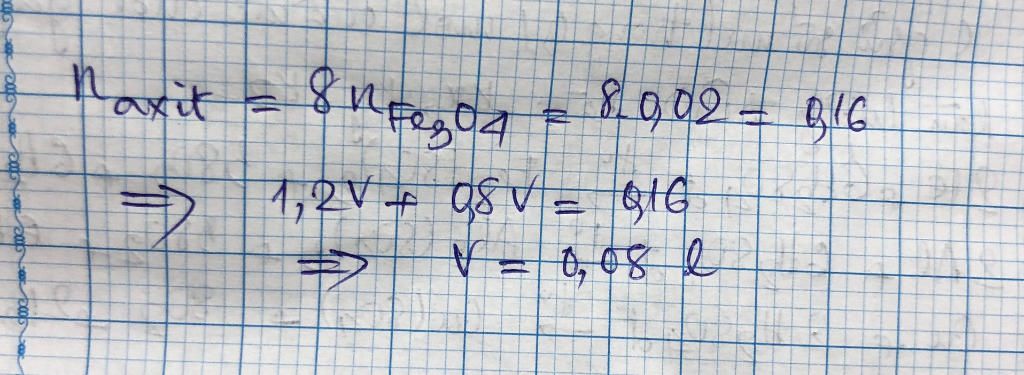 n axit = 8 n Fe3O4 = 8.0,02 = 0,16
⇒ 1,2V + 0,8V = 0,16
⇒ V = 0,08 l